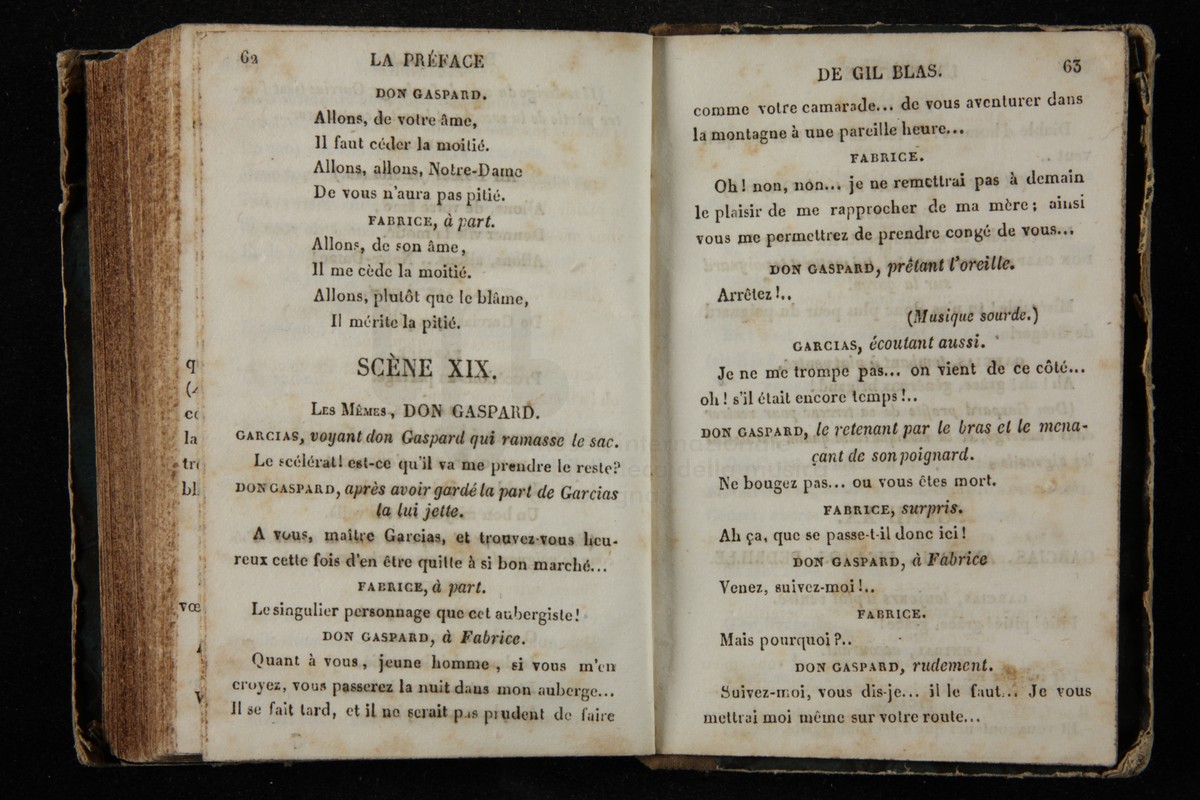 62
LA PRÉFACE
DON GASPARD.
Allons, de votre âme,
Il faut céder la moitié.
Allons, allons, Notre-Dame
De vous n'aura pas pitié.
FABRICE, à part.
Allons, de son âme,
Il me cède la moitié.
Allons, plutôt que le blâme,
Il mérite la pitié.
SCÈNE XIX.
LES MÊMES, DON GASPARD.
GARCIAS, voyant don Gaspard qui ramasse le sac.
Le scélérat! est-ce qu'il va me prendre le reste?
DON GASPARD, après avoir gardé la part de Garcias
la lui jette.
A vous, maître Garcias, et trouvez-vous heu-
reux cette fois d'en être quitte à si bon marché...
FABRICE, à part.
Le singulier personnage que cet aubergiste!
DON GASPARD, à Fabrice.
Quant à vous, jeune homme, si vous m'en
croyez, vous passerez la nuit dans mon auberge...
Il se fait tard, et il ne serait pas prudent de faire
DE GIL BLAS.
63
comme votre camarade... de vous aventurer dans
la montagne à une pareille heure...
FABRICE.
Oh! non, non... je ne remettrai pas à demain
le plaisir de me rapprocher de ma mère; ainsi
vous me permettrez de prendre congé de vous...
DON GASPARD, prêtant l'oreille.
Arrêtez!..
(Musique sourde.)
GARCIAS, écoutant aussi.
Je ne me trompe pas... on vient de ce côté...
oh! s'il était encore temps!..
DON GASPARD, le retenant par le bras et le mena-
çant de son poignard.
Ne bougez pas... ou vous êtes mort.
FABRICE, surpris.
Ah ça, que se passe-t-il donc ici!
DON GASPARD, à Fabrice
Venez, suivez-moi!..
FABRICE.
Mais pourquoi?..
DON GASPARD, rudement.
Suivez-moi, vous dis-je... il le faut... Je vous
mettrai moi même sur votre route...